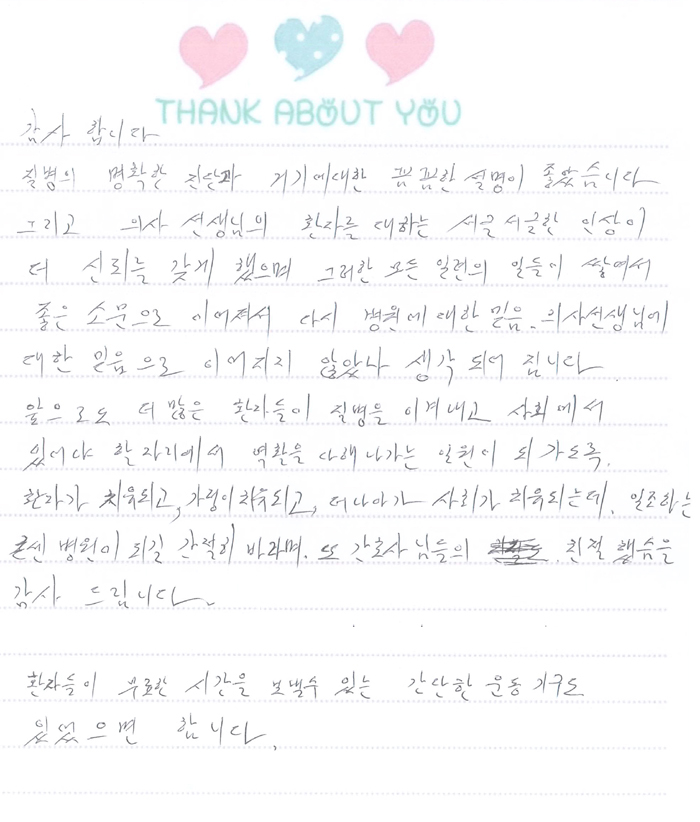 THANK ABOUT YOU
감사 합니다
질병의 명확한 진단과 거기에대한 꼼꼼한 설명이 좋았습니다
그리고 의사 선생님의 환자를 대하는 서글서글한 인상이
더 신뢰를 갖게 했으며 그러한 모든 일련의 일들이 쌓여서
좋은 소문으로 이어져서 다시 병원에 대한 믿음. 의사선생님에
대한 믿음으로 이어지지 않았나 생각 되어 집니다.
앞으로도 더 많은 환자들이 질병을 이겨내고 사회에서
있어야 할 자리에서 역활을 다해나가는 일원이 되 가도록.
환자가 치유되고, 가정이 치유되고, 더나아가 사회가 치유되는데. 일조하는
센 병원이 되길 간절히 바라며. 또 간호사님들의 친절 했슴을
감사 드립니다.
환자들이 무료한 시간을 보낼수 있는 간단한 운동 기구도
있었으면 합니다.